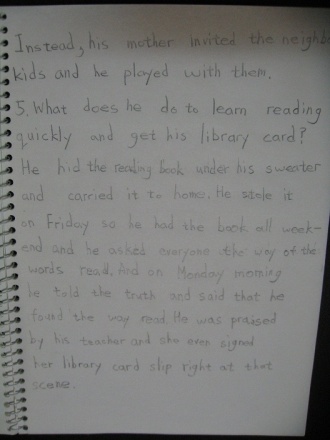 Instead, his mother invited the neighb
kids and he played with them.
5. What does he do to learn reading
quickly and get his library card?
He hid the reading book under his sweater
and carried it to home. He stole it
on Friday so he had the book all week-
end and he asked everyone the way of the
words read. And on Monday morning
he told the truth and said that he
found the way read. He was praised
by his teacher and she even signed
her library card slip right at that
scene.